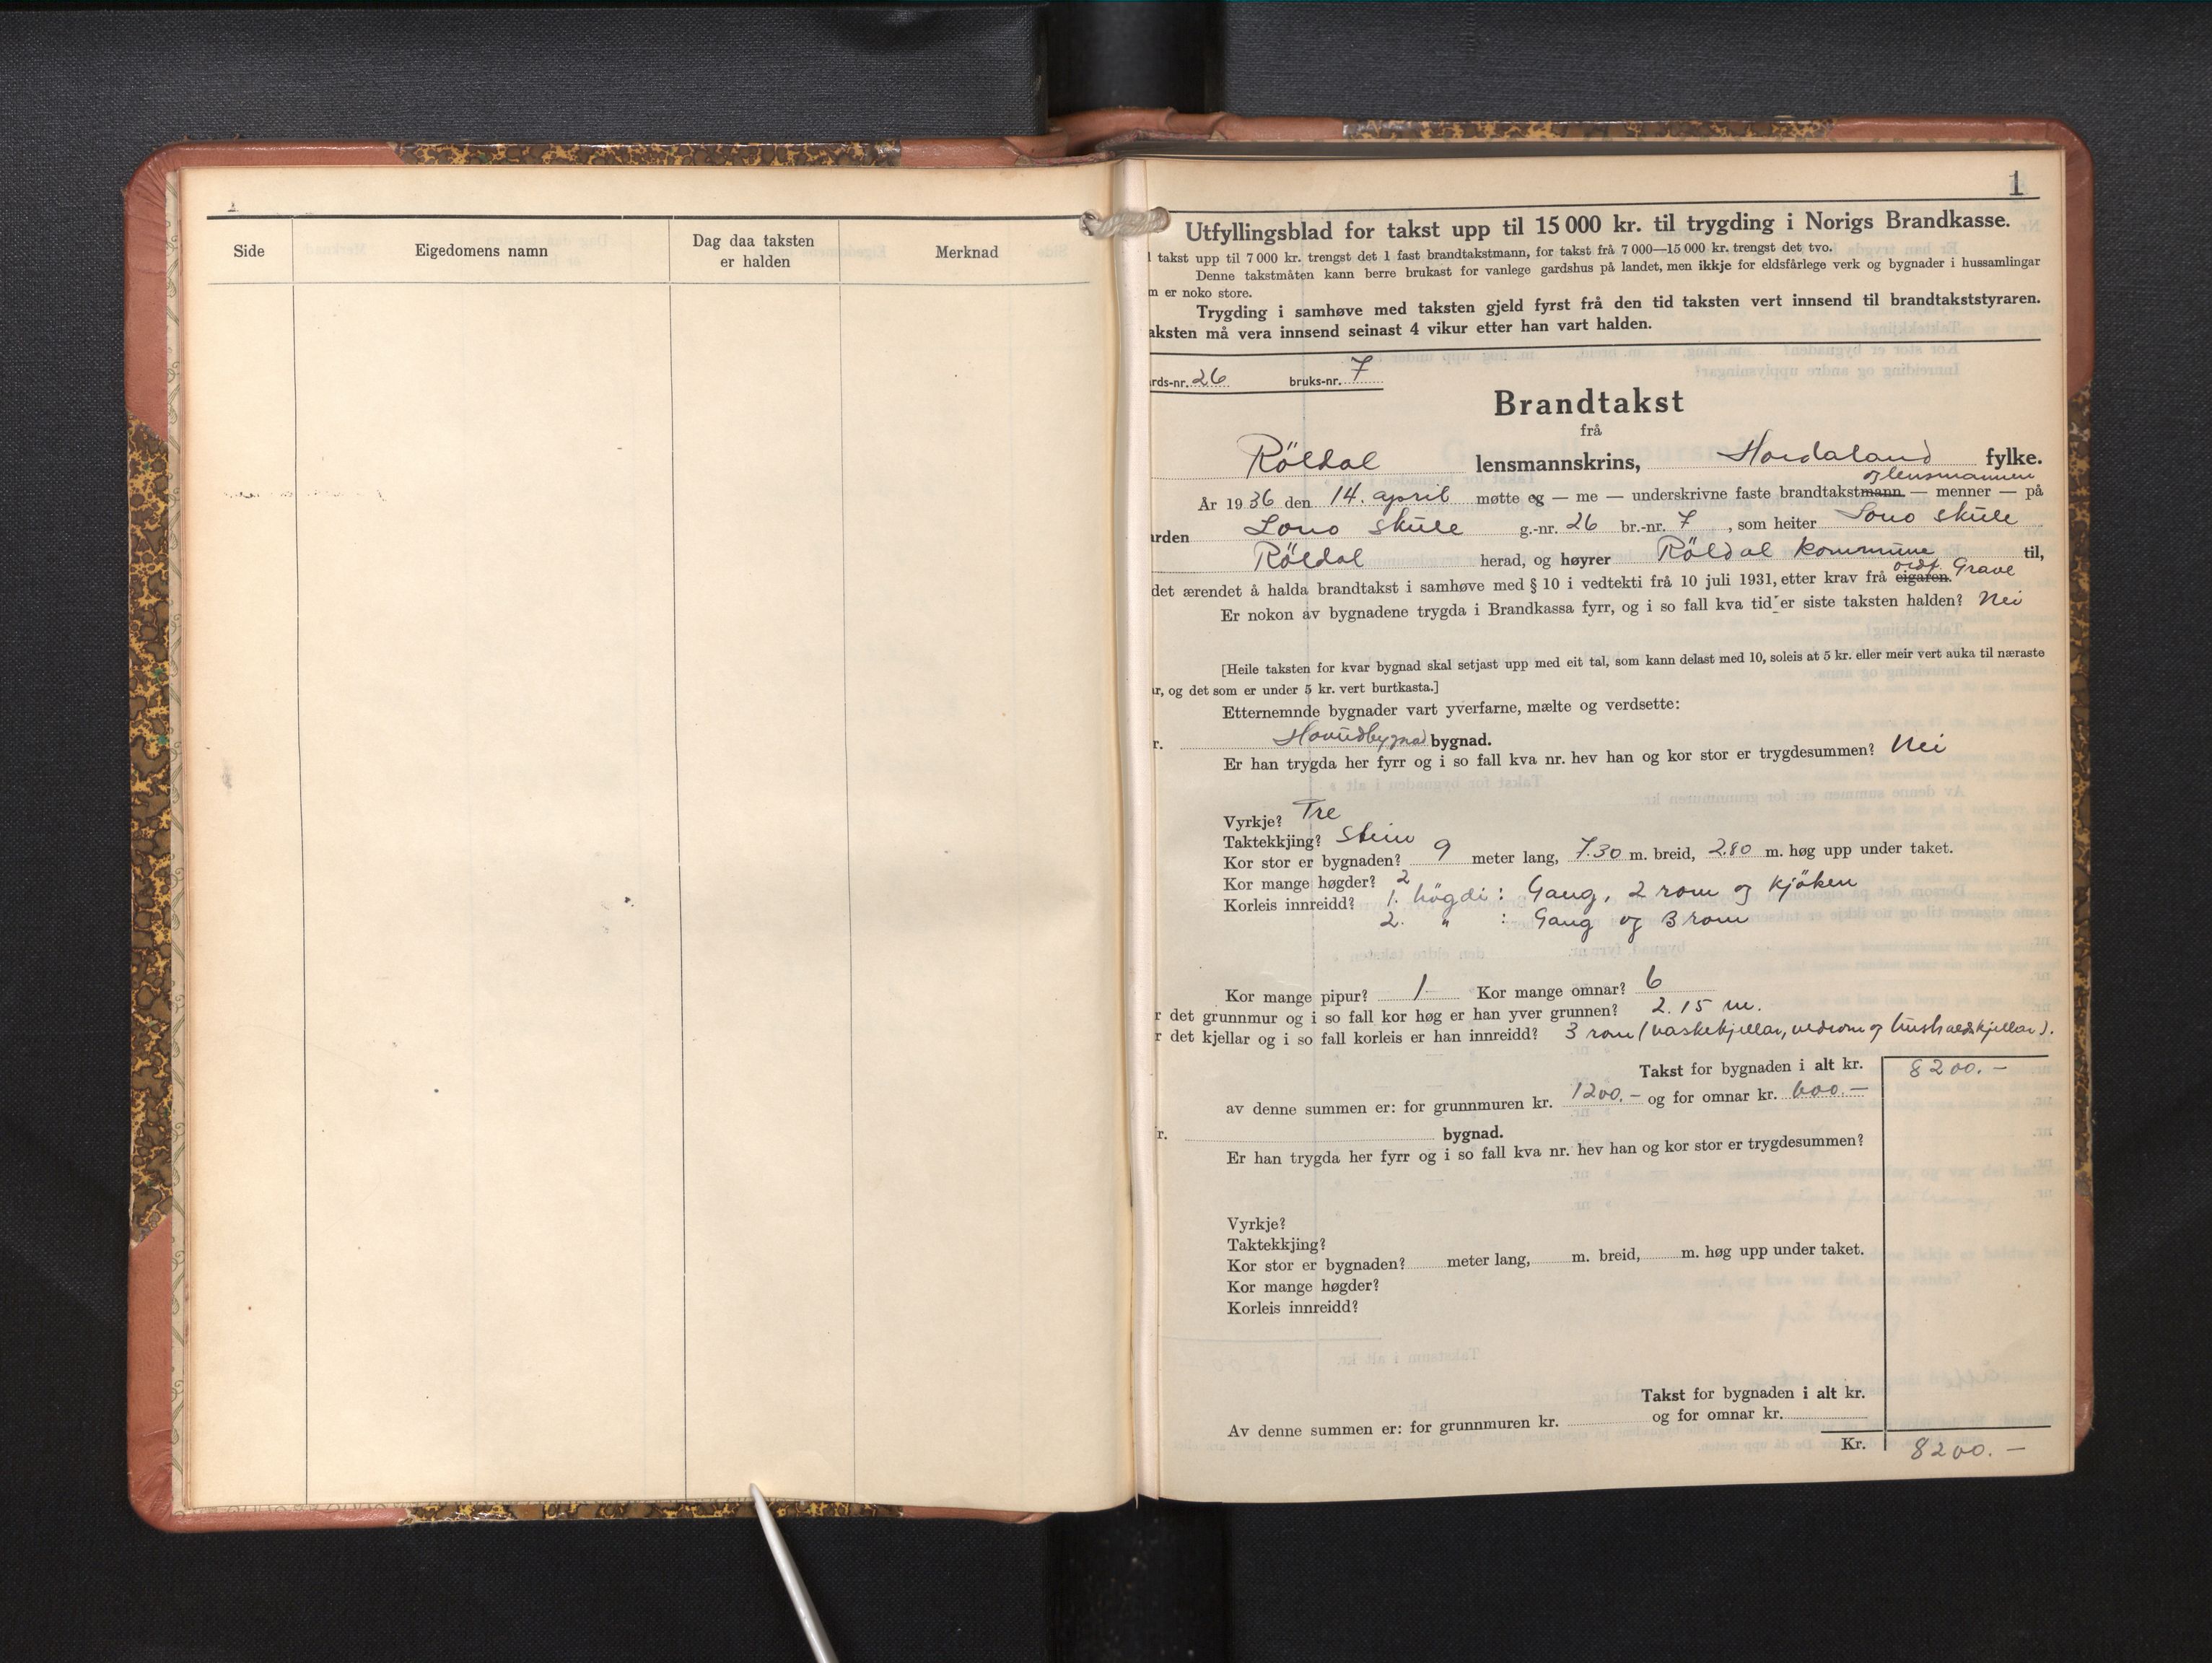 Side Eigedomens namn Dag daa taksten er halden Merknad
1
Utfyllingsblad for takst upp til 15 000 kr. til trygding i Norigs Brandkasse.
takst upp til 7 000 kr. trengst det 1 fast brandtakstmann, for takst frå 7 000—15 000 kr. trengst det tvo.
Denne takstmåten kann berre brukast for vanlege gardshus på landet, men ikkje for eldsfårlege verk og bygnader i hussamlingar
m er noko store.
Trygding i samhøve med taksten gjeld fyrst frå den tid taksten vert innsend til brandtakststyraren.
aksten må vera innsend seinast 4 vikur etter han vart halden.
rds-nr. 26 bruks-nr. 7
Brandtakst
frå
Röldal lensmannskrins, Hordaland fylke.
og lensmannen
År 1936 den 14. april møtte eg — me — underskrivne faste brandtakstmann — menner — på
rden Lono skule g.-nr. 26 br.-nr. 7, som heiter Lono skule
Röldal herad, og høyrer Röldal kommune til,
ordf. Grave
det ærendet å halda brandtakst i samhøve med § 10 i vedtekti frå 10 juli 1931, etter krav frå eigaren.
Er nokon av bygnadene trygda i Brandkassa fyrr, og i so fall kva tid er siste taksten halden? Nei
[Heile taksten for kvar bygnad skal setjast upp med eit tal, som kann delast med 10, soleis at 5 kr. eller meir vert auka til næraste
r, og det som er under 5 kr. vert burtkasta.]
Etternemnde bygnader vart yverfarne, mælte og verdsette:
r. Hovudbygnad bygnad.
Er han trygda her fyrr og i so fall kva nr. hev han og kor stor er trygdesummen? Nei
Vyrkje? Tre
Taktekkjing? Stein
Kor stor er bygnaden? 9 meter lang, 7.30 m. breid, 2.80 m. høg upp under taket.
Kor mange høgder? 2
Korleis innreidd? 1. högdi: Gang, 2 rom og kjöken
2. " : Gang og 3 rom
Kor mange pipur? 1 Kor mange omnar? 6
r det grunnmur og i so fall kor høg er han yver grunnen? 2.15 m.
r det kjellar og i so fall korleis er han innreidd? 3 rom (vaskekjellar, vedrom og hushaldskjellar).
Takst for bygnaden i alt kr. 8200.—
av denne summen er: for grunnmuren kr. 1200.— og for omnar kr. 600.—
r. bygnad.
Er han trygda her fyrr og i so fall kva nr. hev han og kor stor er trygdesummen?
Vyrkje?
Taktekkjing?
Kor stor er bygnaden? meter lang, m. breid, m. høg upp under taket.
Kor mange høgder?
Korleis innreidd?
Takst for bygnaden i alt kr.
Av denne summen er: for grunnmuren kr. og for omnar kr.
Kr. 8200.—